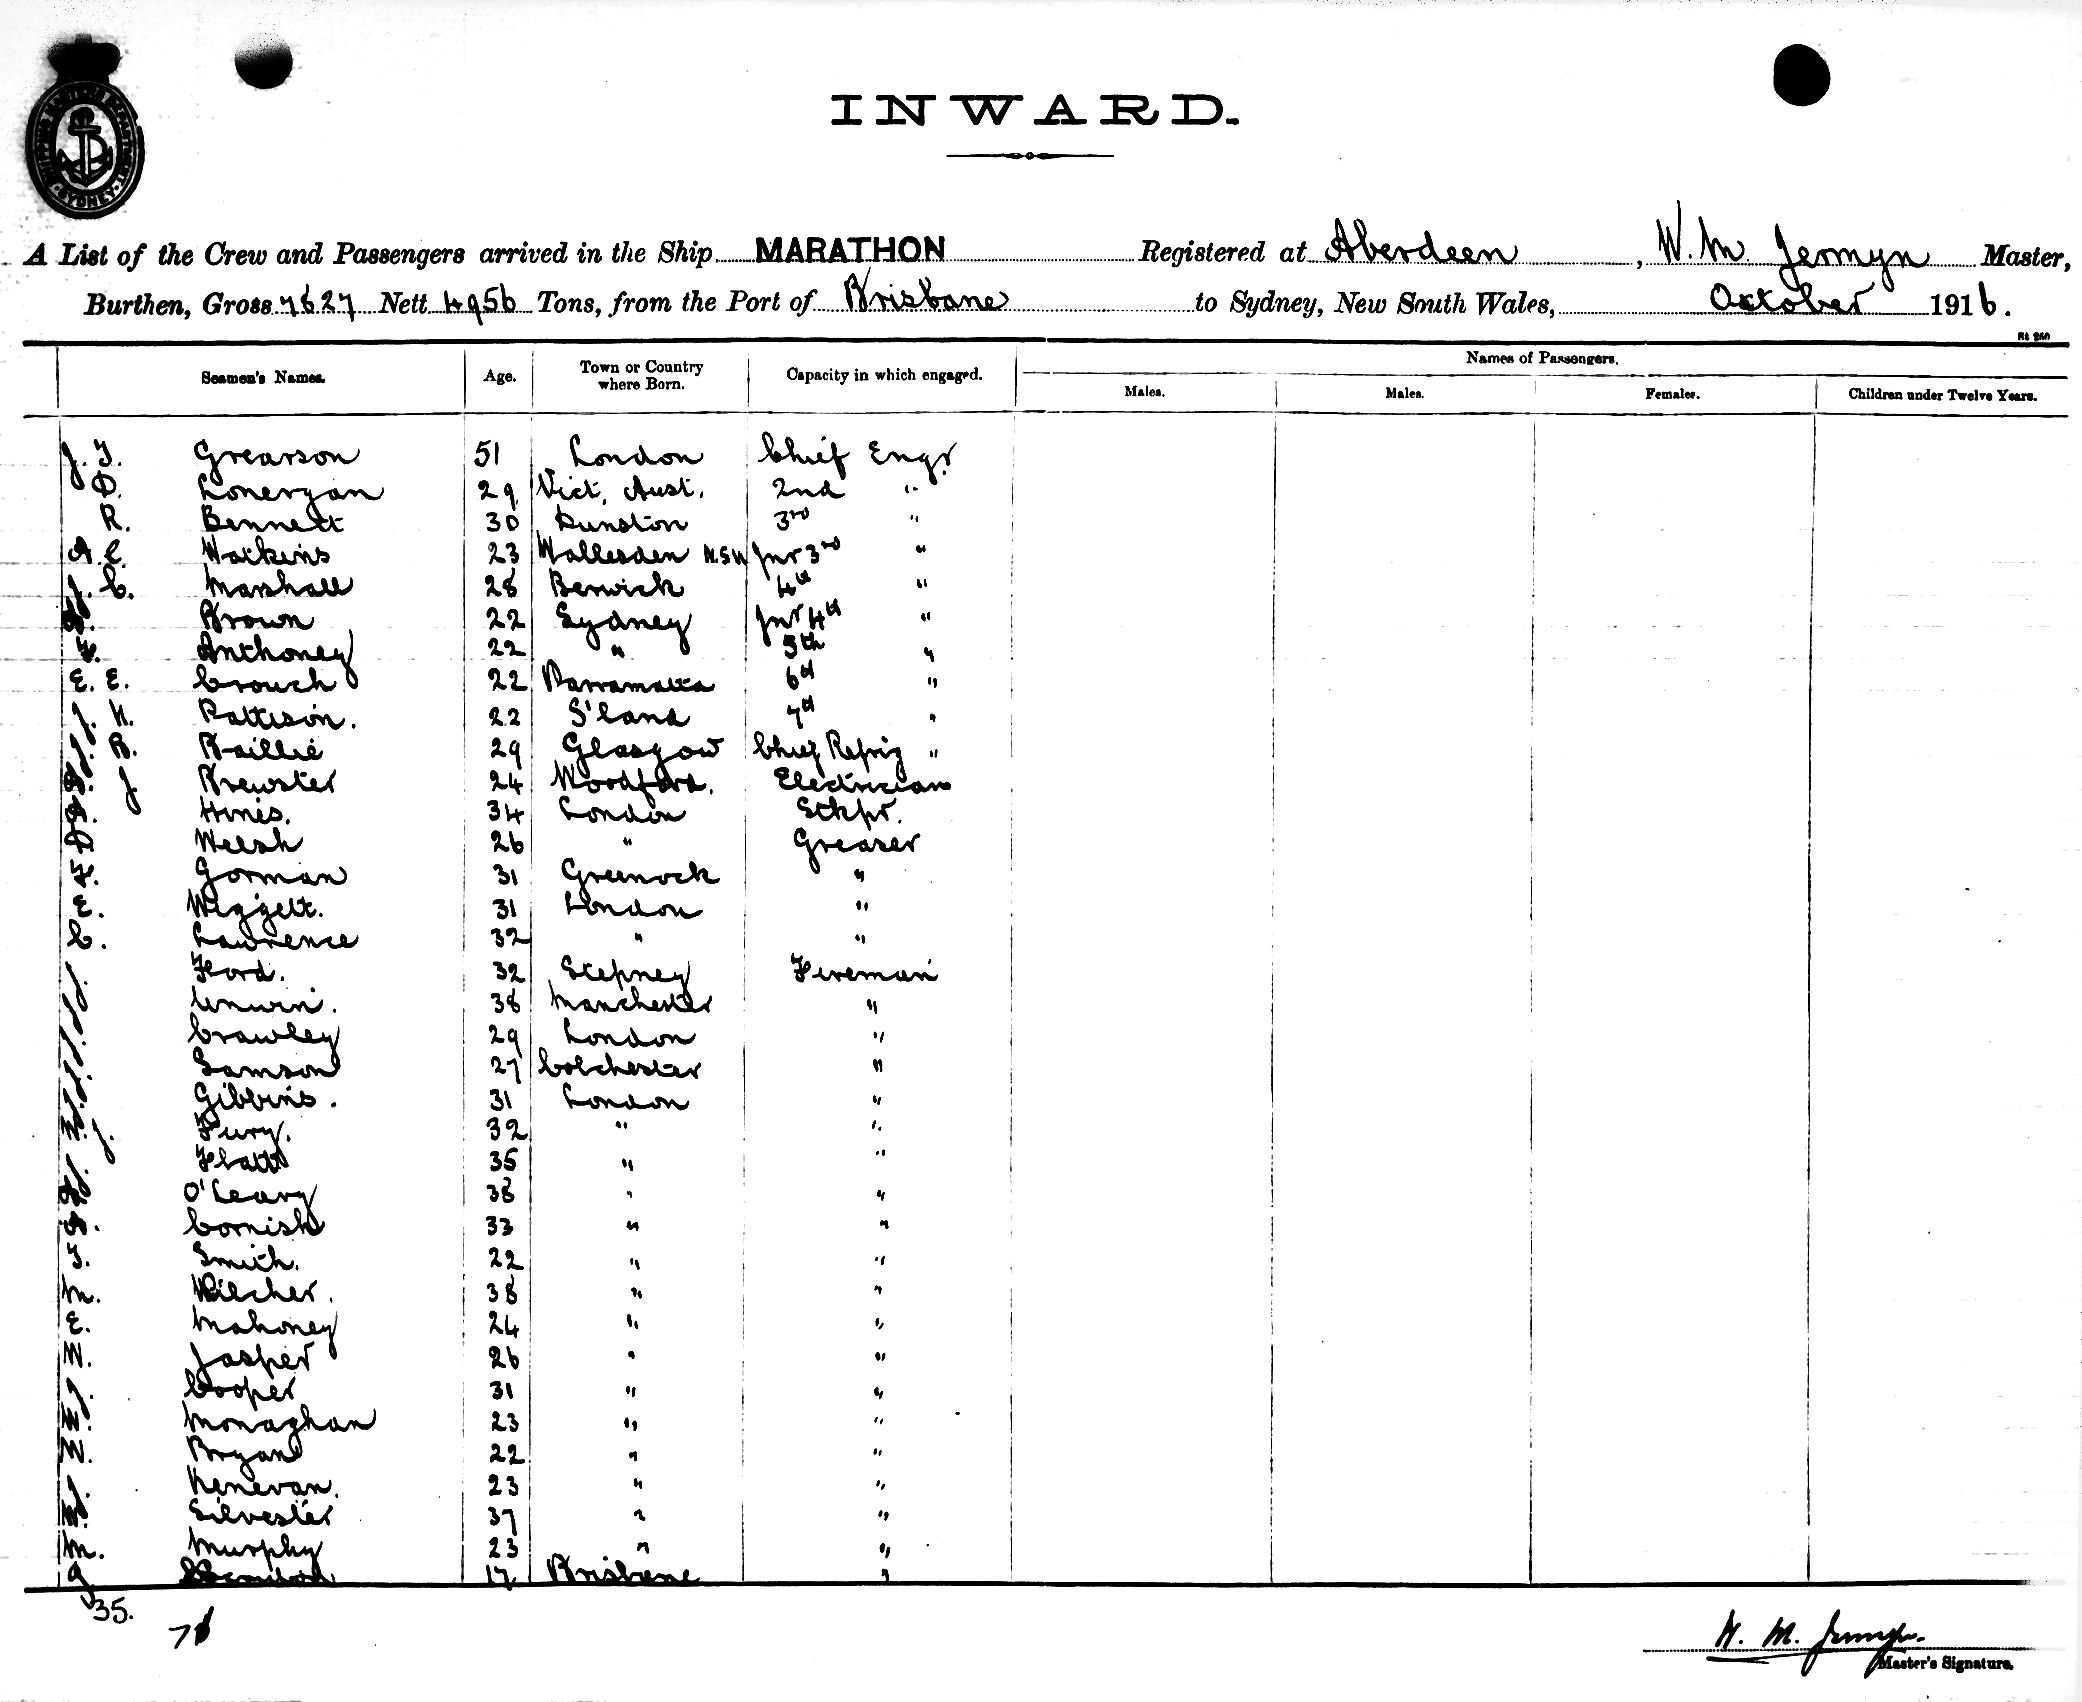 SHIPPING MASTERS DEPARTMENT SYDNEY
INWARD.
A List of the Crew and Passengers arrived in the Ship MARATHON Registered at Aberdeen, W. M Jermyn Master,
Burthen, Gross 7827 Nett 4956 Tons, from the Port of Brisbane to Sydney, New South Wales, October 1916.
St 260
Seamen's Names. Age. Town or Country where Born. Capacity in which engaged. Names of Passengers.
Males. Males. Females. Children under Twelve Years.
J. T. Grearson 51 London Chief Engr.
D. Lonergan 29 Vict, Aust. 2nd "
R. Bennett 30 Dunston 3rd "
A. C. Watkins 23 Wallesden N.S.W Jnr 3rd "
J. C. Marshall 28 Berwick 4th "
Brown 22 Sydney Jnr 4th "
F. Anthoney 22 " 5th "
E. E. Crouch 22 Parramatta 6th "
J. H. Pattison. 22 S'land 7th "
J. B. Baillie 29 Glasgow Chief Refrig "
J Brewster 24 Woodford. Electrician
Hines. 34 London Stkpr.
Welsh 26 " Greaser
F. Gorman 31 Greenock "
E. Wiggett. 31 London "
C. Lawrence 32 " "
J Ford. 32 Stepney Fireman
J Unwin. 38 Manchester "
J Crawley 29 London "
J Samson 27 Colchester "
Gibbins. 31 London "
W. J Fury. 32 " "
J Flatt 35 " "
O'Leary 38 " "
Cornish 33 " "
T. Smith. 22 " "
M. Pilcher. 38 " "
E. Mahoney 24 " "
W. Jasper 26 " "
J Cooper 31 " "
W. Monaghan 23 " "
W. Bryan 22 " "
J Kenevan. 23 " "
Silvester 37 " "
M. Murphy 23 " "
17 Brisbane "
35.
W. M. Jermyn.
Master's Signature.